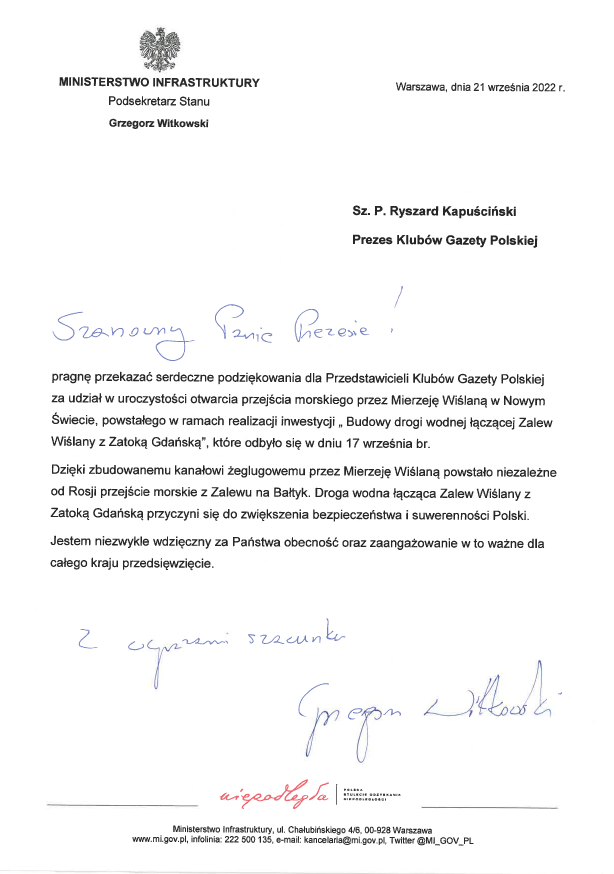 MINISTERSTWO INFRASTRUKTURY
Podsekretarz Stanu
Grzegorz Witkowski
Warszawa, dnia 21 września 2022 r.
Sz. P. Ryszard Kapuściński
Prezes Klubów Gazety Polskiej
Szanowny Panie Prezesie!
pragnę przekazać serdeczne podziękowania dla Przedstawicieli Klubów Gazety Polskiej
za udział w uroczystości otwarcia przejścia morskiego przez Mierzeję Wiślaną w Nowym
Świecie, powstałego w ramach realizacji inwestycji „ Budowy drogi wodnej łączącej Zalew
Wiślany z Zatoką Gdańską”, które odbyło się w dniu 17 września br.
Dzięki zbudowanemu kanałowi żeglugowemu przez Mierzeję Wiślaną powstało niezależne
od Rosji przejście morskie z Zalewu na Bałtyk. Droga wodna łącząca Zalew Wiślany z
Zatoką Gdańską przyczyni się do zwiększenia bezpieczeństwa i suwerenności Polski.
Jestem niezwykle wdzięczny za Państwa obecność oraz zaangażowanie w to ważne dla
całego kraju przedsięwzięcie.
Z wyrazami szacunku
Grzegorz Witkowski
niepodległa
POLSKA
STULECIE ODZYSKANIA
NIEPODLEGŁOŚCI
Ministerstwo Infrastruktury, ul. Chałubińskiego 4/6, 00-928 Warszawa
www.mi.gov.pl, infolinia: 222 500 135, e-mail: kancelaria@mi.gov.pl, Twitter @MI_GOV_PL